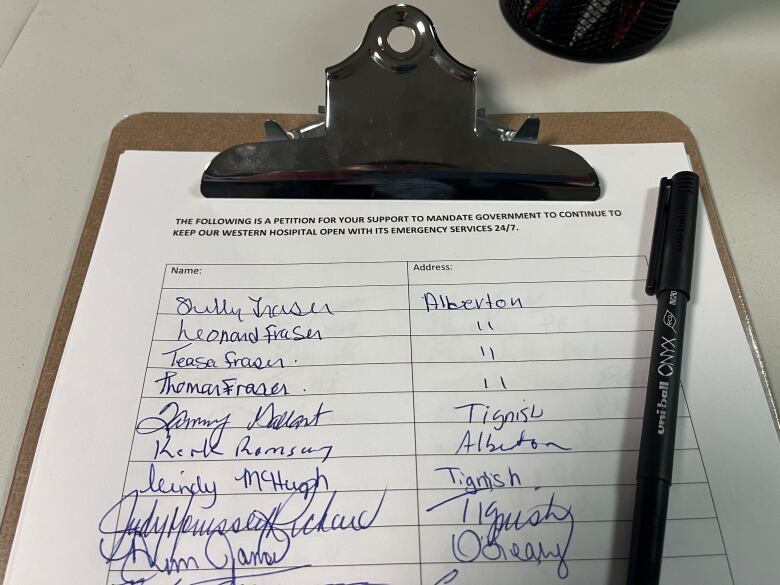 THE FOLLOWING IS A PETITION FOR YOUR SUPPORT TO MANDATE GOVERNMENT TO CONTINUE TO
KEEP OUR WESTERN HOSPITAL OPEN WITH ITS EMERGENCY SERVICES 24/7.
Name: Address:
Shelly Fraser Alberton
Leonard Fraser "
Teasa Fraser. "
Thomas Fraser. "
Tammy Gallant Tignish
Ramsay Alberton
McHugh Tignish.
Judy Richard Tignish
O'Leary
uni-ball ONYX